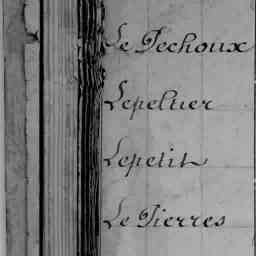 Le Pechoux
Lepeltier
Lepetit
Le Pierres